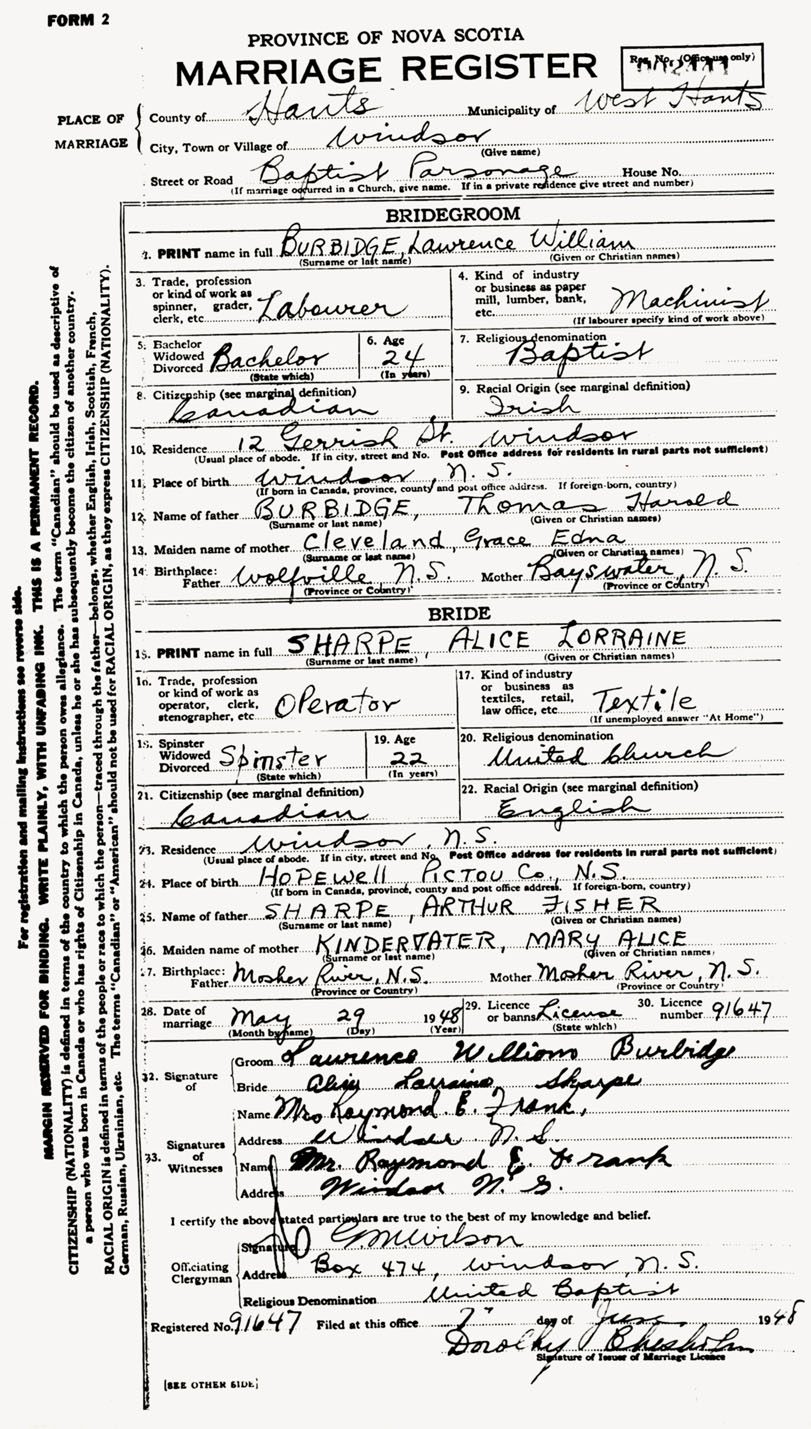 FORM 2
PROVINCE OF NOVA SCOTIA
MARRIAGE REGISTER
Reg. No. (Office use only)
PLACE OF MARRIAGE
County of Hants Municipality of West Hants
City, Town or Village of Windsor
(Give name)
Street or Road Baptist Parsonage House No.
(If marriage occurred in a Church, give name. If in a private residence give street and number)
BRIDEGROOM
2. PRINT name in full BURBIDGE, Lawrence William
(Surname or last name) (Given or Christian names)
3. Trade, profession or kind of work as spinner, grader, clerk, etc. Labourer
4. Kind of industry or business as paper mill, lumber, bank, etc. Machinist
(If labourer specify kind of work above)
5. Bachelor Widowed Divorced Bachelor
(State which)
6. Age 24
(In years)
7. Religious denomination
Baptist
8. Citizenship (see marginal definition)
Canadian
9. Racial Origin (see marginal definition)
Irish
10. Residence 12 Gerrish St. Windsor
(Usual place of abode. If in city, street and No. Post Office address for residents in rural parts not sufficient)
11. Place of birth Windsor, N.S.
(If born in Canada, province, county and post office address. If foreign-born, country)
12. Name of father BURBIDGE, Thomas Harold
(Surname or last name) (Given or Christian names)
13. Maiden name of mother Cleveland, Grace Edna
(Surname or last name) (Given or Christian names)
14. Birthplace: Father Wolfville, N.S. Mother Bayswater, N.S.
(Province or Country) (Province or Country)
BRIDE
15. PRINT name in full SHARPE, ALICE LORRAINE
(Surname or last name) (Given or Christian names)
16. Trade, profession or kind of work as operator, clerk, stenographer, etc Operator
17. Kind of industry or business as textiles, retail, law office, etc. Textile
(If unemployed answer "At Home")
18. Spinster Widowed Divorced Spinster
(State which)
19. Age 22
(In years)
20. Religious denomination
United Church
21. Citizenship (see marginal definition)
Canadian
22. Racial Origin (see marginal definition)
English
23. Residence Windsor, N.S.
(Usual place of abode. If in city, street and No. Post Office address for residents in rural parts not sufficient)
24. Place of birth HOPEWell, PICTOU Co., N.S.
(If born in Canada, province, county and post office address. If foreign-born, country)
25. Name of father SHARPE, ARTHUR FISHER
(Surname or last name) (Given or Christian names)
26. Maiden name of mother KINDERVATER, MARY ALICE
(Surname or last name) (Given or Christian names)
27. Birthplace: Father Mosher River, N.S. Mother Mosher River, N.S.
(Province or Country) (Province or Country)
28. Date of marriage May 29 1948
(Month by name) (Day) (Year)
29. Licence or banns License
(State which)
30. Licence number 91647
32. Signature of
Groom Lawrence William Burbidge
Bride Alice Lorraine Sharpe
33. Signatures of Witnesses
Name Mrs Raymond E. Frank,
Address Windsor N.S.
Name Mr. Raymond E Frank
Address Windsor N.S.
I certify the above stated particulars are true to the best of my knowledge and belief.
Officiating Clergyman
Signature G M Wilson
Address Box 474, Windsor, N.S.
Religious Denomination United Baptist
Registered No. 91647 Filed at this office 7" day of June 1948
Dorothy Chisholm
Signature of Issuer of Marriage Licence
[SEE OTHER SIDE]
For registration and mailing instructions see reverse side.
MARGIN RESERVED FOR BINDING. WRITE PLAINLY, WITH UNFADING INK. THIS IS A PERMANENT RECORD.
CITIZENSHIP (NATIONALITY) is defined in terms of the country to which the person owes allegiance. The term "Canadian" should be used as descriptive of
a person who was born in Canada or who has rights of Citizenship in Canada, unless he or she has subsequently become the citizen of another country.
RACIAL ORIGIN is defined in terms of the people or race to which the person—traced through the father—belongs, whether English, Irish, Scottish, French,
German, Russian, Ukrainian, etc. The terms "Canadian" or "American" should not be used for RACIAL ORIGIN, as they express CITIZENSHIP (NATIONALITY).